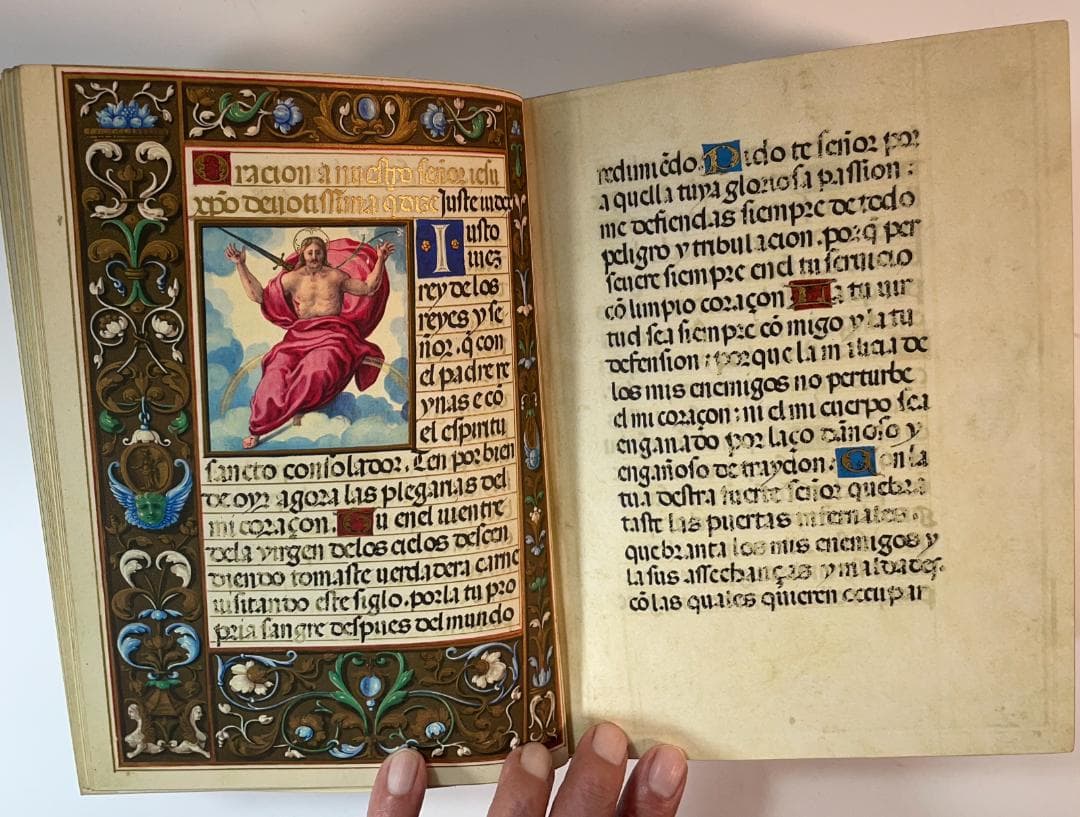 Oracion a nuestro señor iesu
xp̄o deuotissima q̄ dize Juste iudex
Iusto
iuez
rey de los
reyes y se
ñor. q̄ con
el padre re
ynas e cō
el espiritu
sancto consolador. Ten por bien
de oyr agora las pleganas del
mi coraçon. Tu en el uientre
dela virgen delos cielos descen
diendo tomaste uerdadera carne
uisitando este siglo. por la tu pro
pria sangre despues del mundo
redumēdo. Pido te señor por
a quella tuya gloriosa passion:
me defiendas siempre de todo
peligro y tribulacion. porq̄ per
seuere siempre en el tu seruicio
cō limpio coraçon. La tu uir
tud sea siempre cō migo y la tu
defension: porque la malicia de
los mis enemigos no perturbe
el mi coraçon: ni el mi cuerpo sea
enganado por laço dañoso y
engañoso de trayçion. Con la
tua destra fuerte señor quebra
taste las puertas infernales.
quebranta los mis enemigos y
la sus assechanças y maldades.
cō las quales quieren occupar